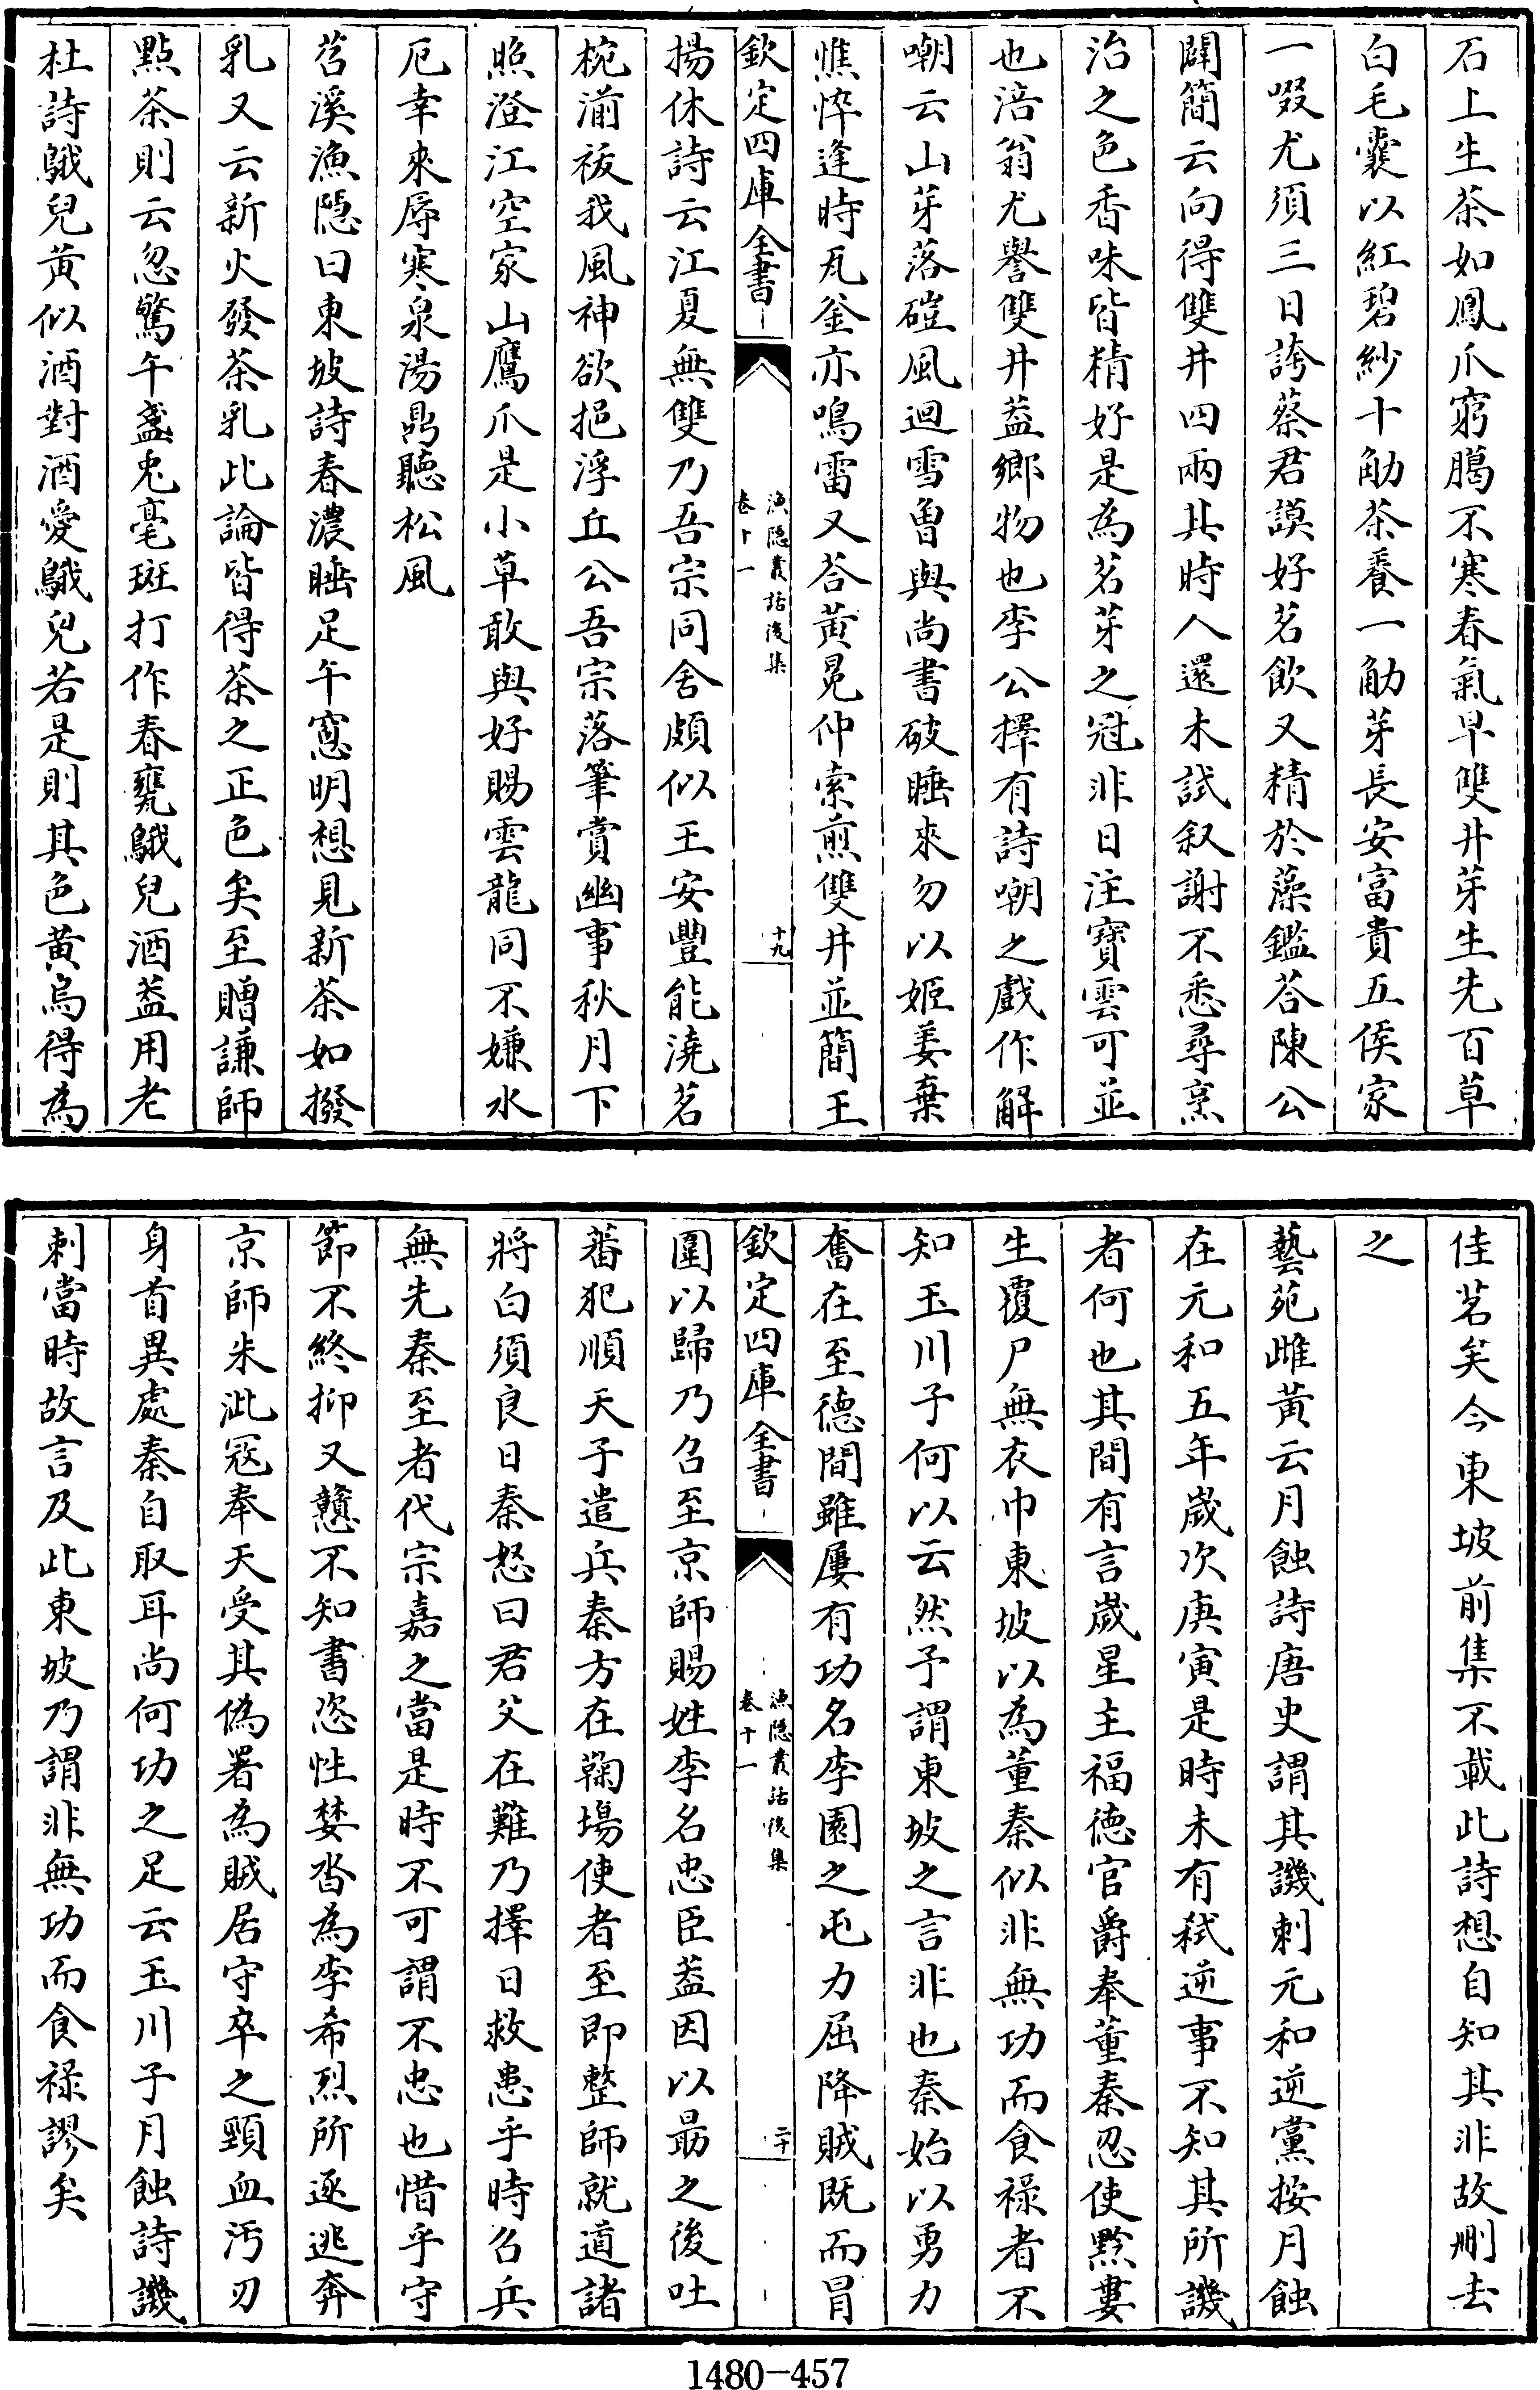 石上生茶如鳳爪窮臈不寒春氣早雙井芽生先百草
白毛囊以紅碧紗十觔茶養一觔芽長安富貴五侯家
一啜尤須三日誇蔡君謨好茗飲又精於藻鑑荅陳公
闢簡云向得雙井四兩其時人還未試叙謝不悉尋烹
治之色香味皆精好是為茗芽之冠非日注寳雲可並
也涪翁尤譽雙井葢鄉物也李公擇有詩嘲之戲作解
嘲云山芽落磑風迴雪曽與尚書破睡來勿以姬姜棄
憔悴逢時瓦釜亦鳴雷又荅黄冕仲索煎雙井並簡王
欽定四庫全書
漁隱叢話後集
卷十一
十九
揚休詩云江夏無雙乃吾宗同舍頗似王安豐能澆茗
椀湔祓我風神欲挹浮丘公吾宗落筆賞幽事秋月下
照澄江空家山鷹爪是小草敢與好賜雲龍同不嫌水
厄幸來辱寒泉湯鼎聽松風
苕溪漁隱曰東坡詩春濃睡足午窻明想見新茶如撥
乳又云新火發茶乳此論皆得茶之正色矣至贈謙師
點茶則云忽驚午盞兎毫斑打作春甕鵝兒酒葢用老
杜詩鵝兒黄似酒對酒愛鵝兒若是則其色黄烏得為
佳茗矣今東坡前集不載此詩想自知其非故刪去
之
藝苑雌黄云月蝕詩唐史謂其譏刺元和逆黨按月蝕
在元和五年歲次庚寅是時未有弑逆事不知其所譏
者何也其間有言歲星主福德官爵奉董秦忍使黔婁
生覆尸無衣巾東坡以為董秦似非無功而食禄者不
知玉川子何以云然予謂東坡之言非也秦始以勇力
奮在至德間雖屢有功名李園之屯力屈降賊既而冐
欽定四庫全書
漁隱叢話後集
卷十一
二十
圍以歸乃召至京師賜姓李名忠臣葢因以朂之後吐
蕃犯順天子遣兵秦方在鞠場使者至即整師就道諸
將白須良日秦怒曰君父在難乃擇日救患乎時召兵
無先秦至者代宗嘉之當是時不可謂不忠也惜乎守
節不終抑又戇不知書恣性婪沓為李希烈所逐逃奔
京師朱泚冦奉天受其偽署為賊居守卒之頸血汚刃
身首異處秦自取耳尚何功之足云玉川子月蝕詩譏
刺當時故言及此東坡乃謂非無功而食禄謬矣
1480-457